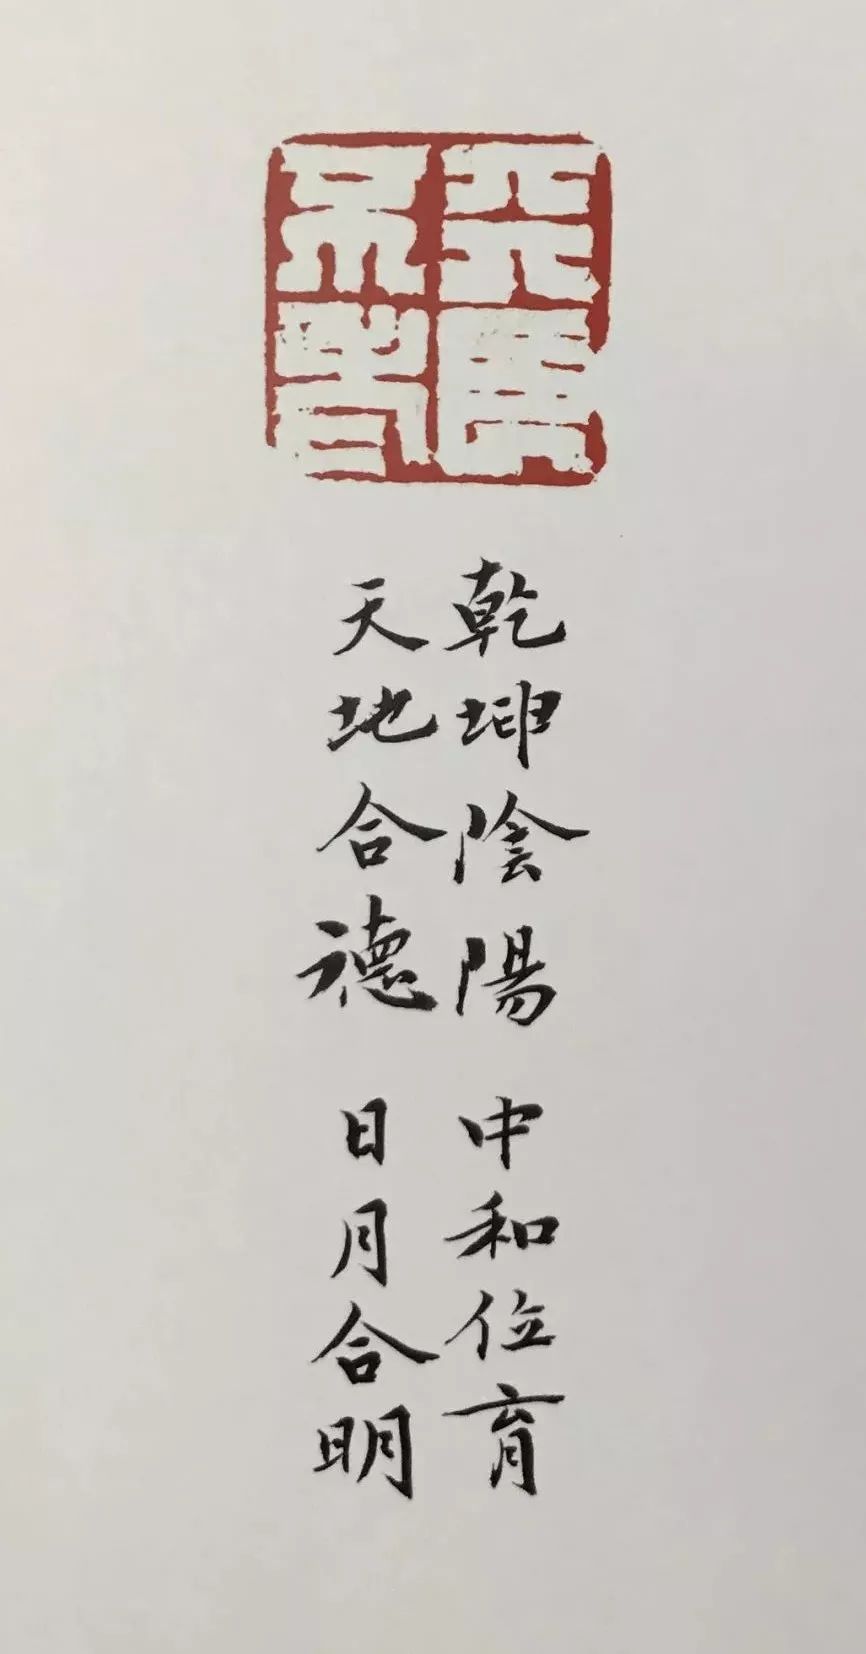 乾坤陰陽 中和位育
天地合德 日月合明